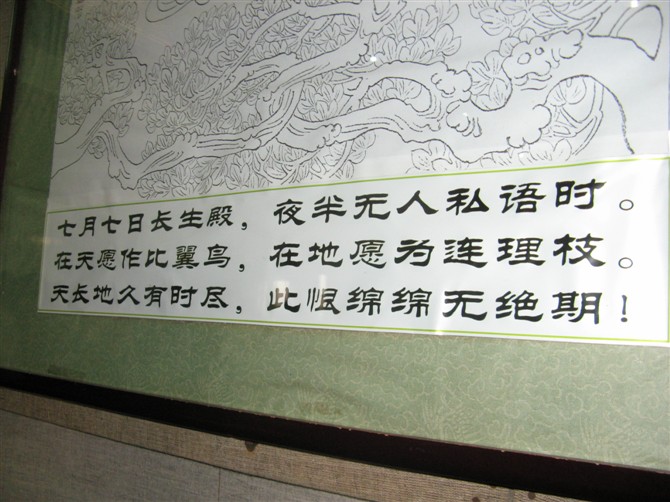 七月七日长生殿，夜半无人私语时。
在天愿作比翼鸟，在地愿为连理枝。
天长地久有时尽，此恨绵绵无绝期！